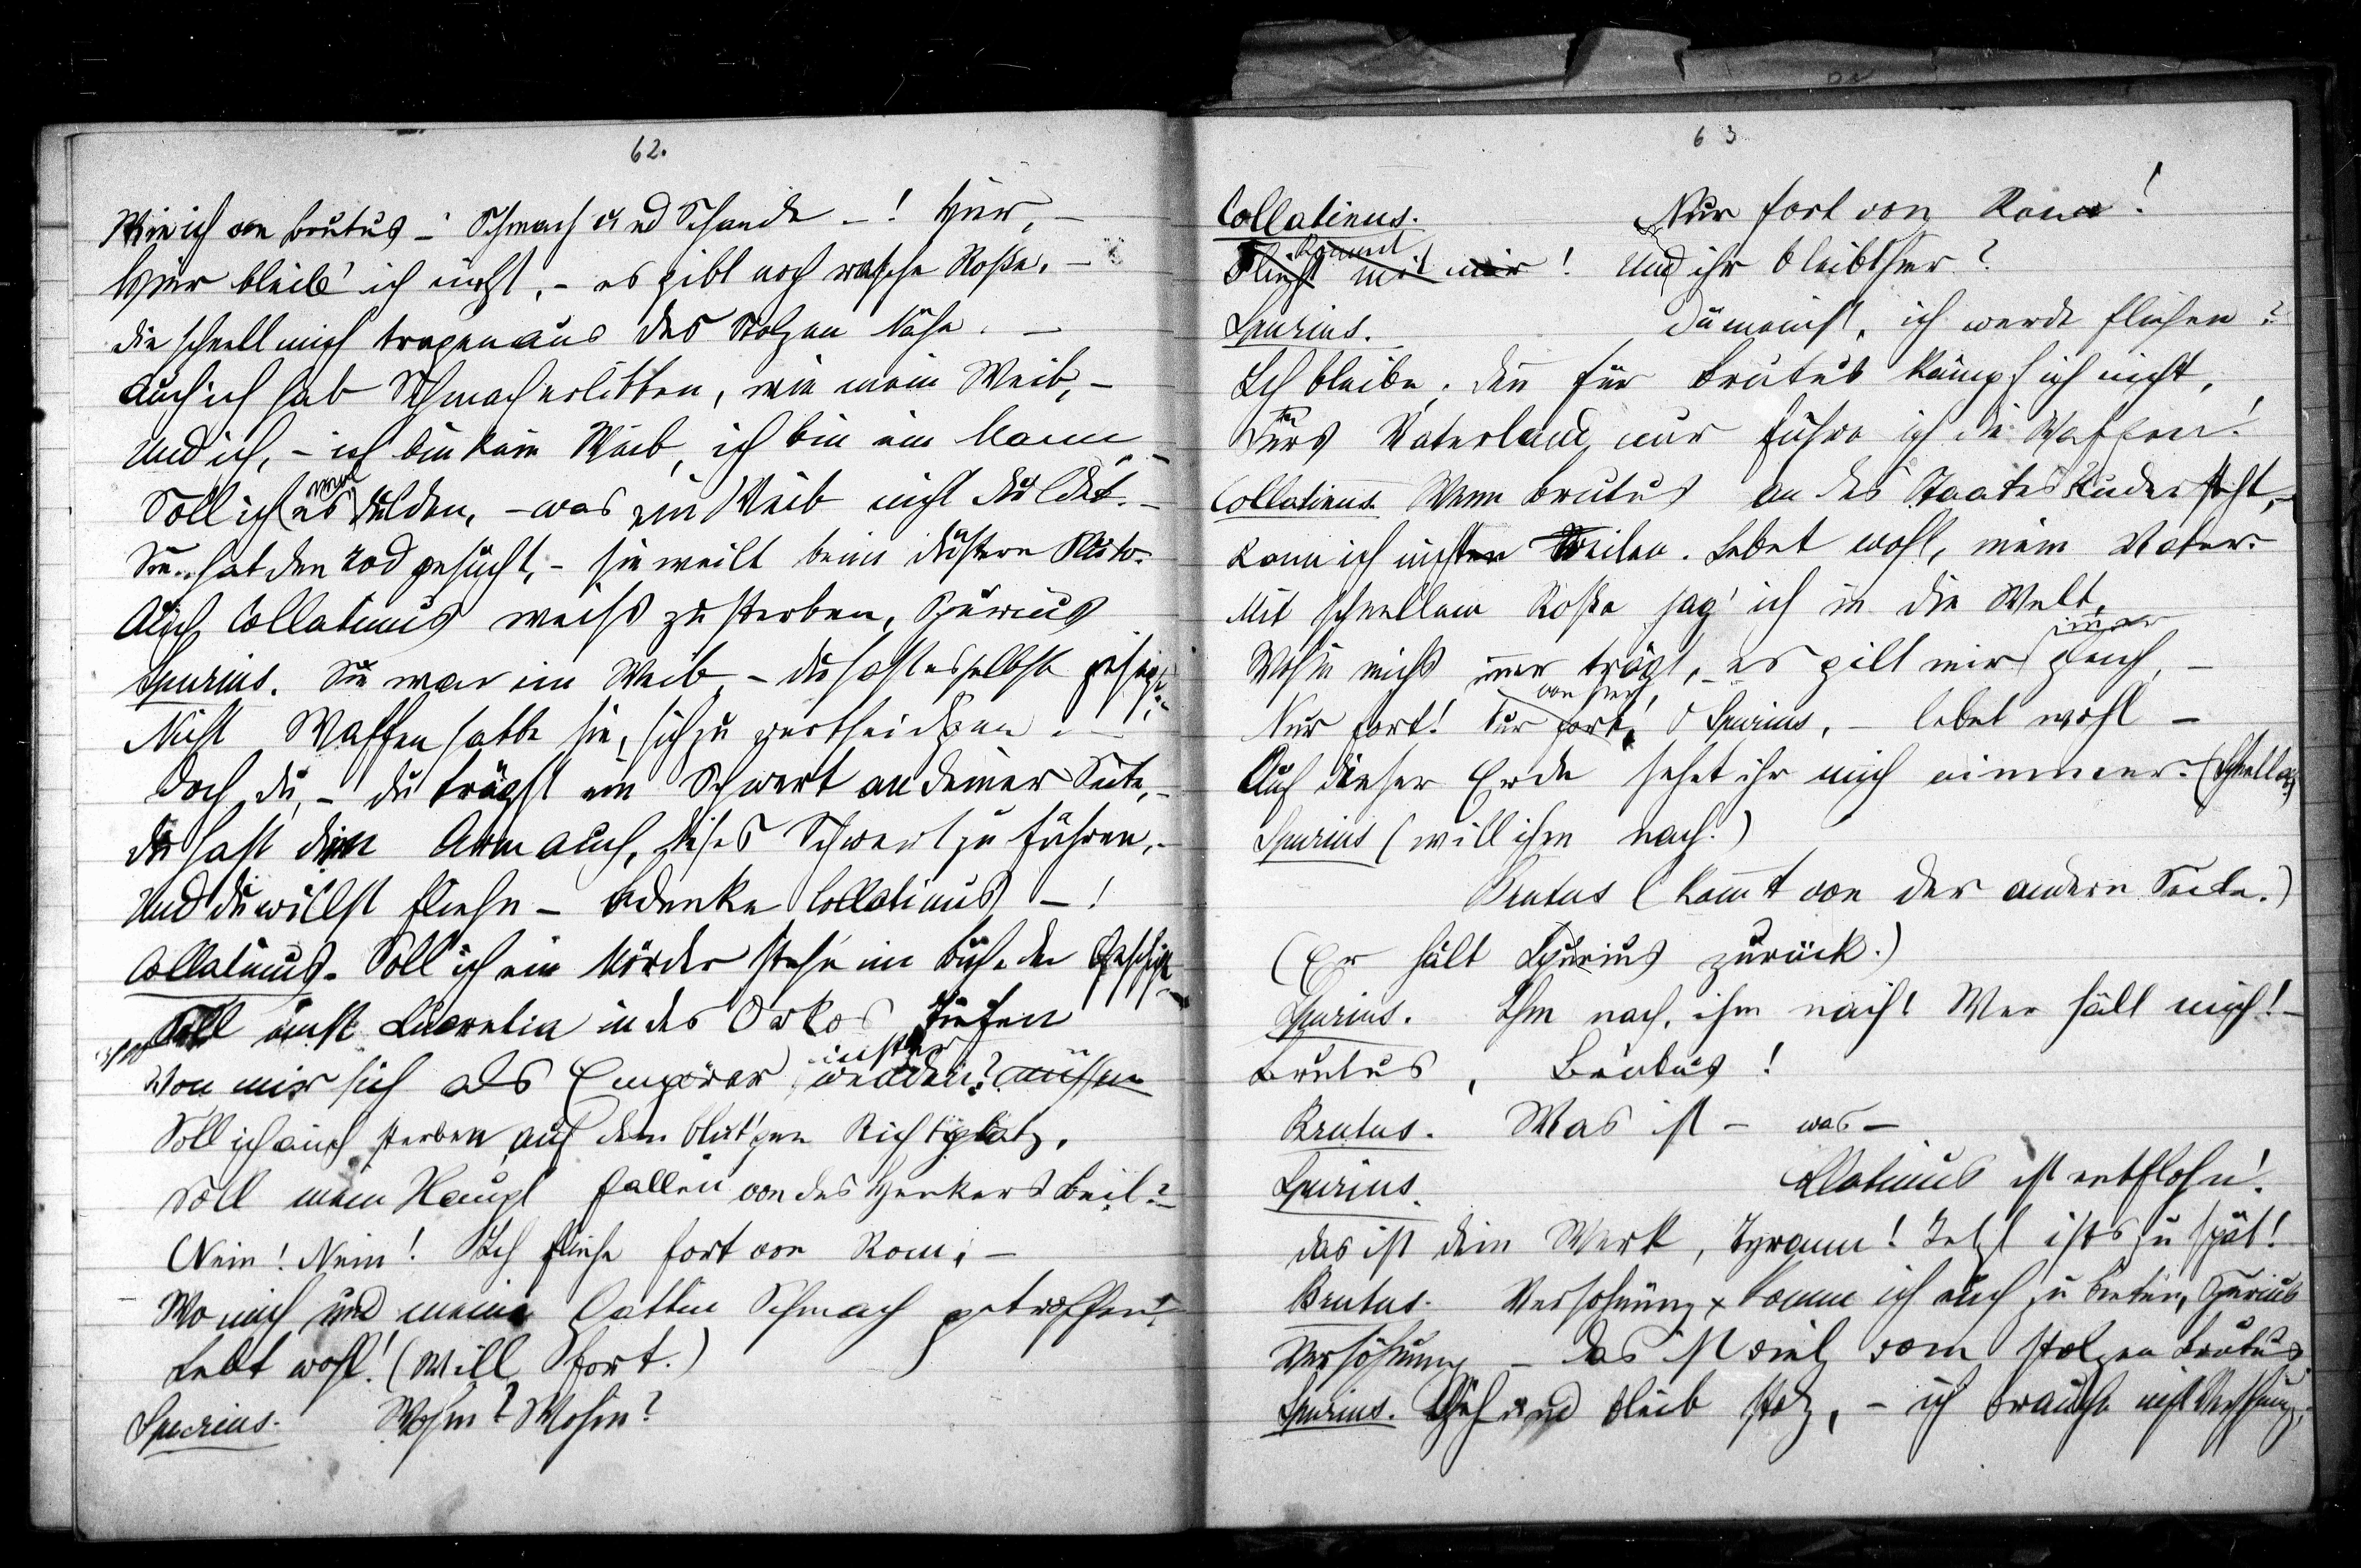 62.
Wie ich von Brutus – Schmach und Schande – ! Hier, –
Hier bleib' ich nicht, – es gibt noch rasche Roße, –
die schnell mich tragen aus des Stolzen Nähe. –
Auch ich hab Schmach erlitten, wie mein Weib, –
Und ich, – ich bin kein Weib, ich bin ein Mann –
Soll ich es dulden, – was ein Weib nicht duldet. –
Sie hat den Tod gesucht, – sie weilt beim düstern Pluto.
Auch Collatinus weiß zu sterben, Spurius
Spurius. Sie war ein Weib, – du hast es selbst gesagt,
Nicht Waffen hatte sie, sich zu vertheidigen. –
Doch du, – du trägst ein Schwert an deiner Seite, –
du hast den Arm auch, dises Schwert zu führen, –
Und du willst fliehn – bedenke Collatinus – !
Collatinus. Soll ich ein Mörder stehn im Buch der Geschichte
Soll einst Lucretia in des Orkos Tiefen
Von mir sich als Empörer wenden? müssen
Soll ich auch sterben auf dem blut'gen Richtplatz,
Soll mein Haupt fallen von des Henkers Beil?
Nein! Nein! Ich fliehe fort von Rom, –
Wo mich und meine Gattin Schmach getroffen!
Lebt wohl! (Will fort.)
Spurius. Wohin? Wohin?
63
Collatinus. Nur fort von Rom!
Kommt
Flieht mit mir! Und ihr bleibt hier?
Spurius. Du meinst, ich werde fliehen?
Ich bleibe, den für Brutus kämpf ich nicht,
Fürs Vaterland nur führe ich die Waffen!
Collatinus. Wenn Brutus an des Staates Ruder steht, –
Kann ich nicht weilen. Lebet wohl, mein Vater.
Mit schnellem Roße jag' ich in die Welt,
immer
Wohin michs immer trägt, – es gilt mir gleich, –
von hier
Nur fort! Nur fort! O Spurius, – lebet wohl –
Auf dieser Erde sehet ihr mich nimmer. (Schnell ab)
Spurius (will ihm nach.)
Brutus (komt von der andern Seite.)
(Er hält Spurius zurück.)
Spurius. Ihm nach, ihm nach! Wer hält mich! –
Brutus, Brutus!
Brutus. Was ist – was –
Spurius. Collatinus ist entflohn!
das ist dein Werk, Tyrann! Jetzt ists zu spät!
Brutus. Versöhnung komme ich euch zu bieten, Spurius
Versöhnung – das ist viel vom stolzen Brutus
Spurius. Geh und bleib stolz, – ich brauche nicht Versöhnung,